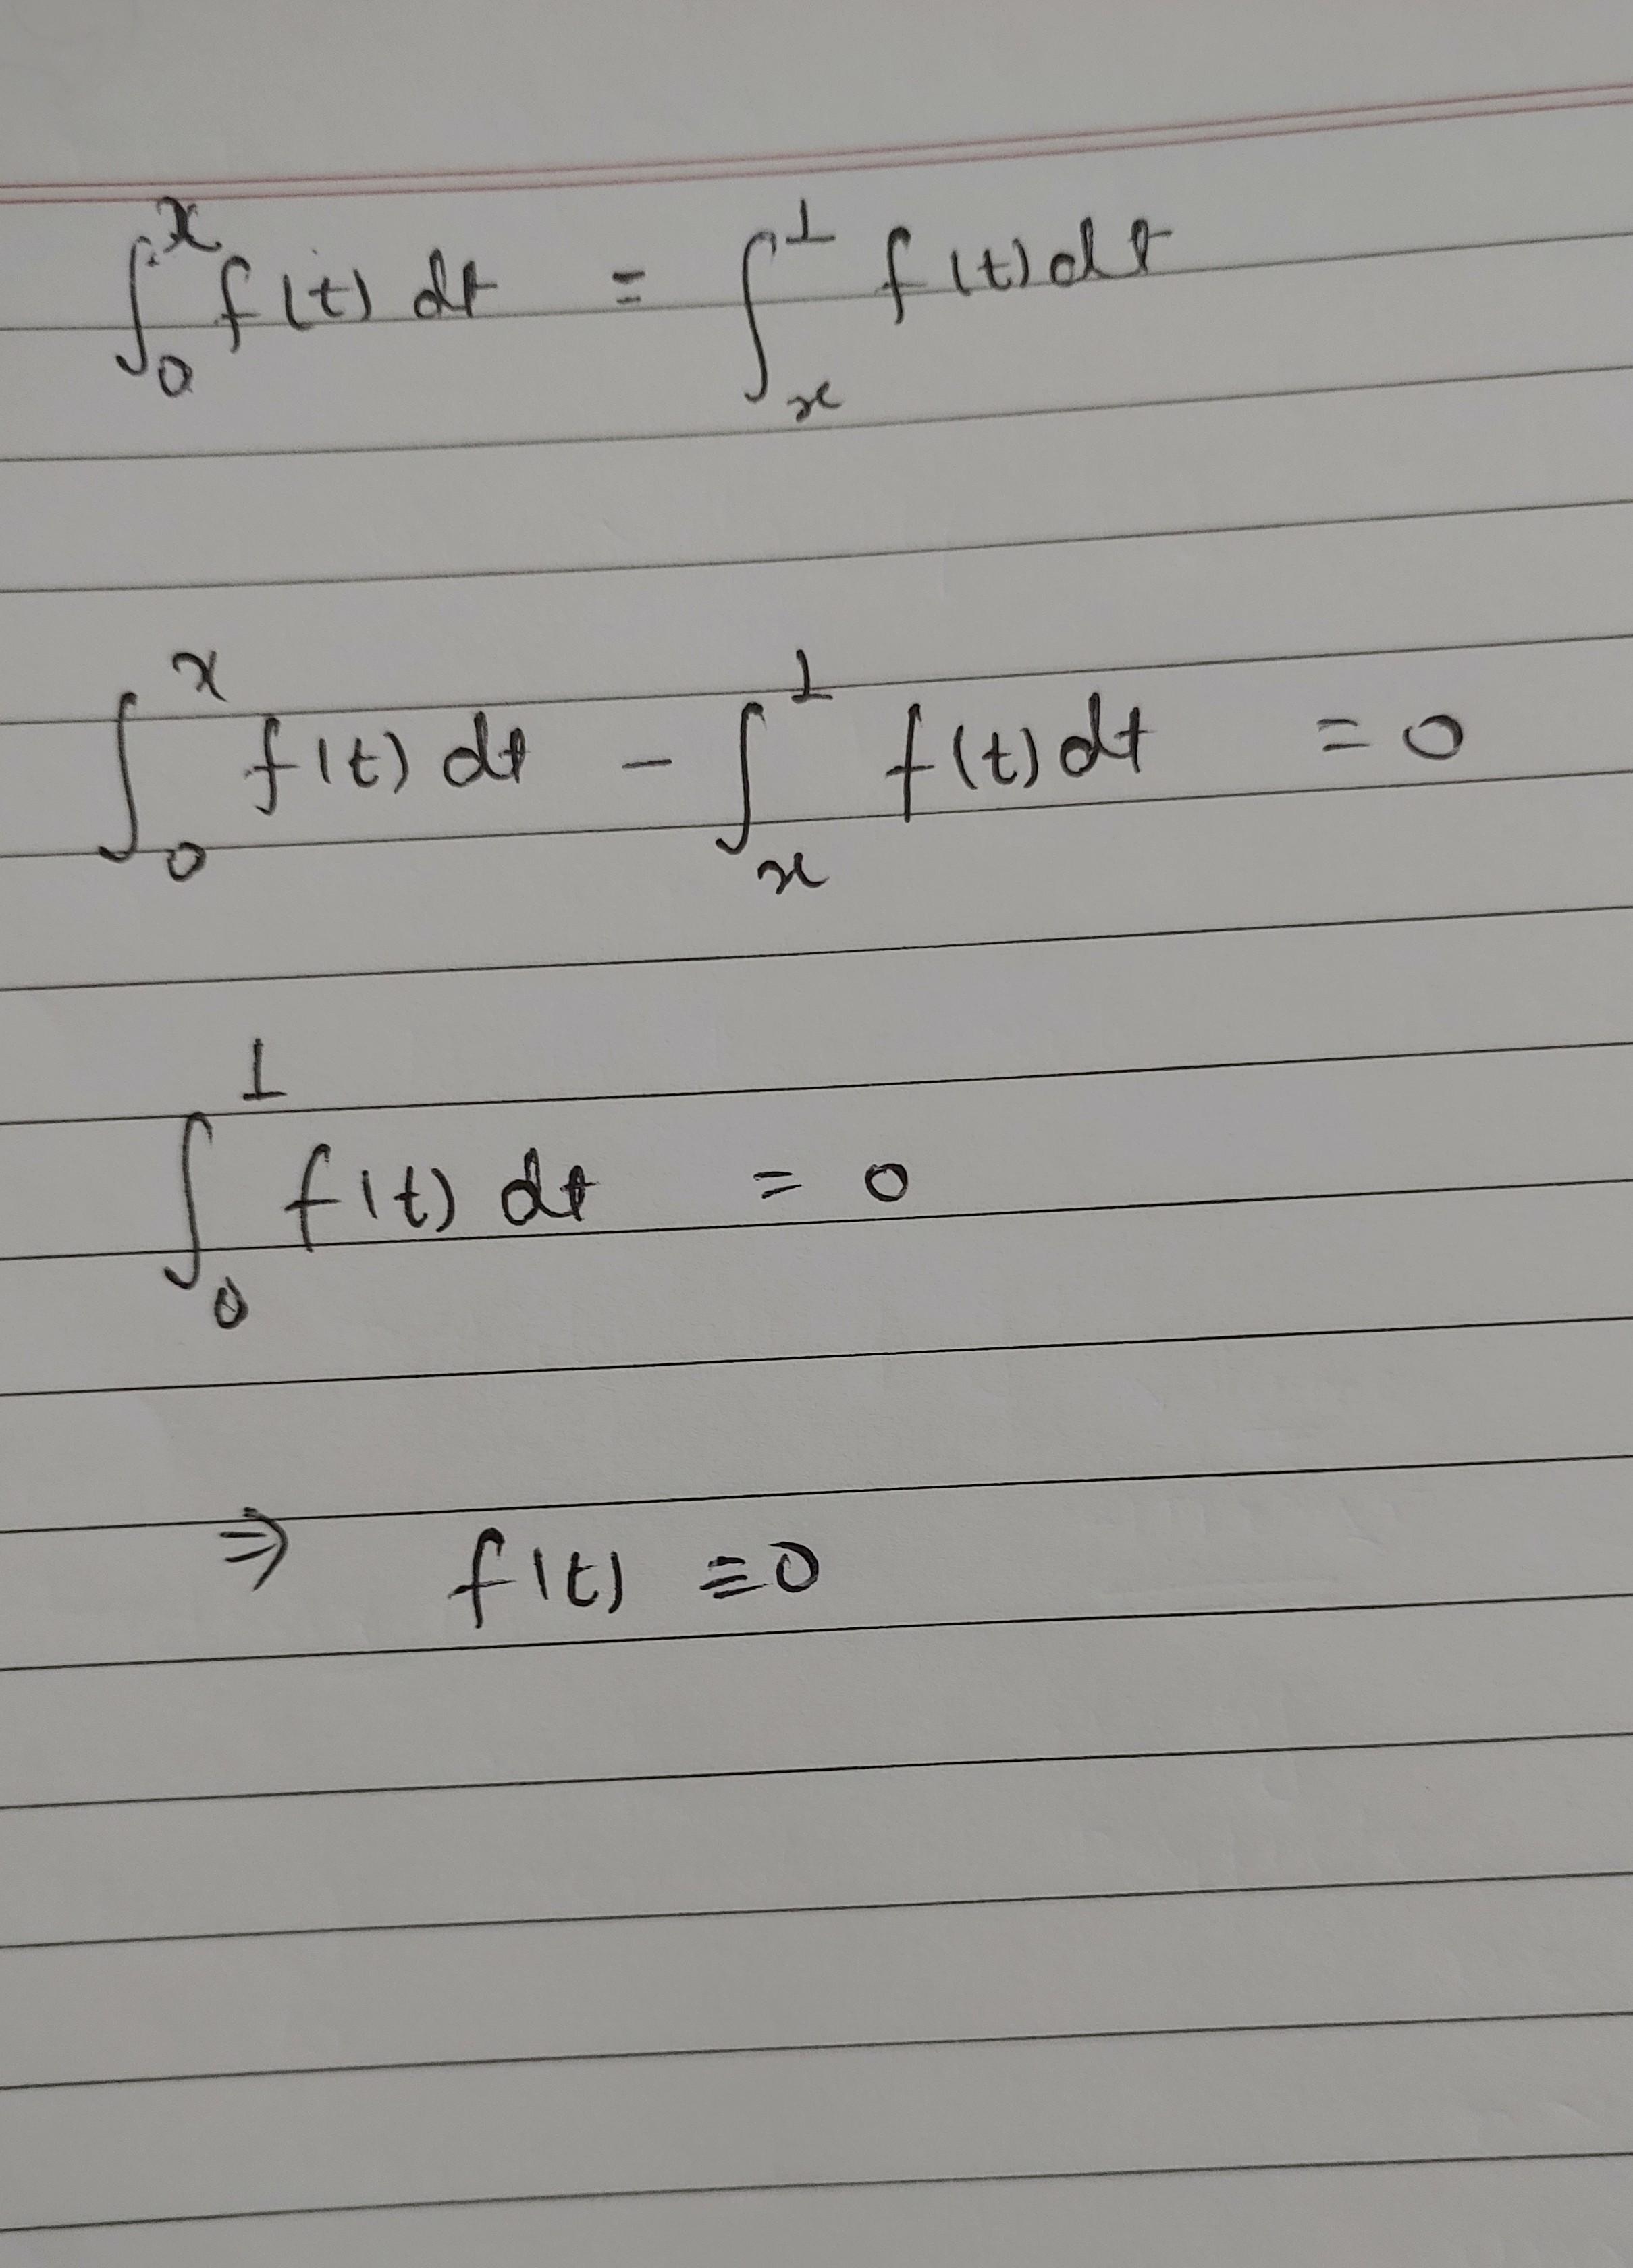 ∫₀ˣ f(t) dt = ∫ₓ¹ f(t) dt
∫₀ˣ f(t) dt − ∫ₓ¹ f(t) dt = 0
∫₀¹ f(t) dt = 0
⇒ f(t) ≡ 0